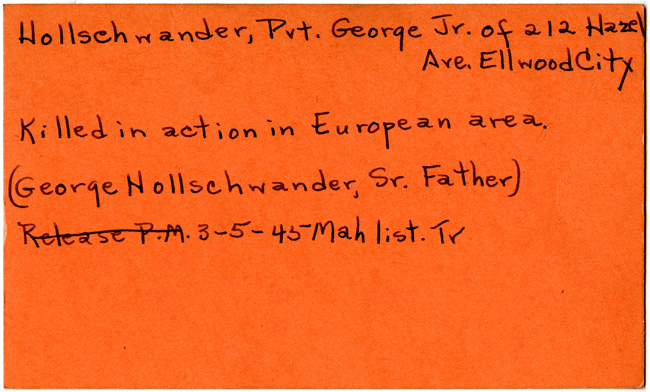 Hollschwander, Pvt. George Jr. of 212 Hazel
Ave. Ellwood City
Killed in action in European area.
(George Hollschwander, Sr. Father)
Release P.M. 3-5-45 Mah list. Tr